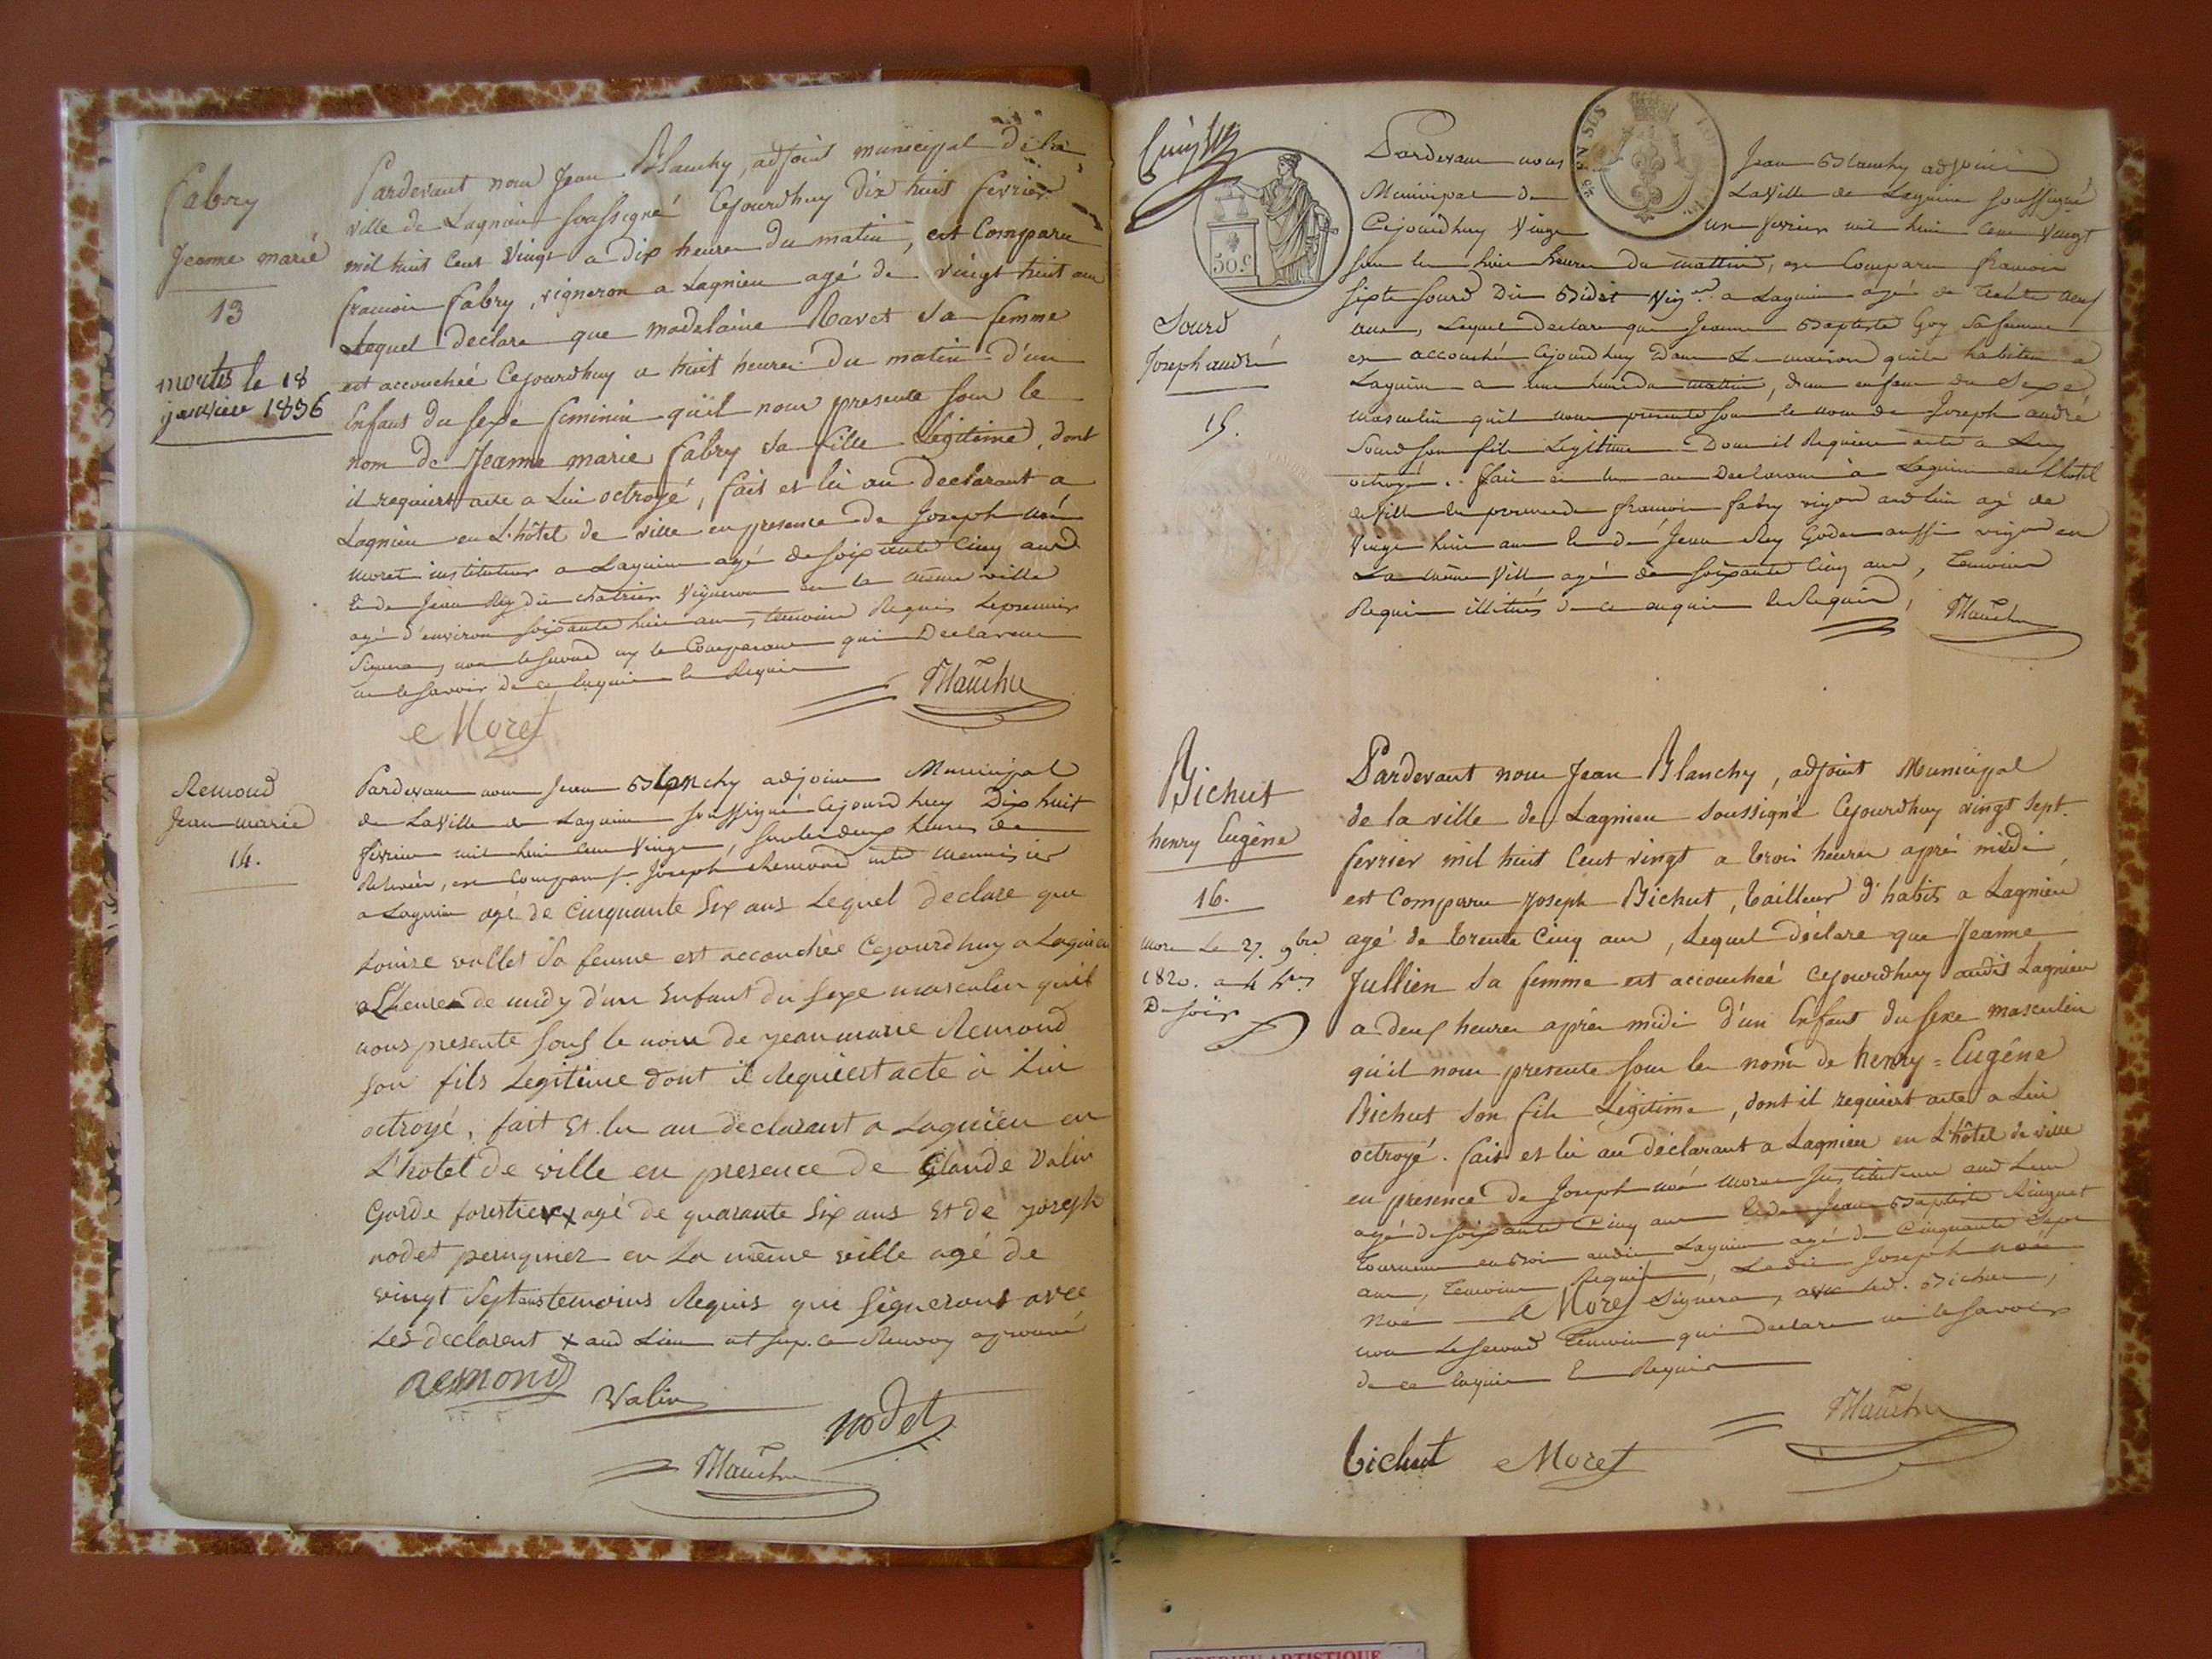 Fabry
Jeanne marie
13
mortes le 18
janvier 1836
Pardevant nous Jean Blanchy, adjoint municipal de la
ville de Lagnieu soussigné Cejourdhuy dix huit fevrier
mil huit Cent vingt a dix heures du matin, est Comparu
francois fabry, vigneron a Lagnieu agé de vingt huit ans
Lequel declare que modelaine Ravet sa femme
est accouchéé Cejourdhuy a huit heures du matin d'un
Enfant du sexe feminin qu'il nous presente sous le
nom de Jeanne marie fabry sa fille Légitime, dont
il requiert acte a Lui octroyé, fait et lu au declarant a
Lagnieu en L'hôtel de ville en presence de Joseph noé
moret instituteur a Lagnieu agé de soixante cinq ans
Et de Jean Rey dit chatrier vigneron en la même ville
agé d'environ soixante huit ans, temoins Requis Lepremier
Signera, non le second ny le Comparant qui Declarent
ne le savoir de ce Enquis Et Requis
Blanchy
Moret
Remond
Jean marie
14.
Pardevant nous Jean Blanchy adjoint Municipal
de La Ville de Lagnieu soussigné Cejourdhuy Dix huit
février mil huit Cent Vingt, sur les deux heures de
Relevée, est Comparu Joseph Remond menuisier
a Lagnieu agé de Cinquante Six ans Lequel declare que
Louise vallet Sa femme est accouchée Cejourdhuy a Lagnieu
a L'heure de midy d'un Enfant du Sexe masculin qu'il
nous presente Sous le nom de jean marie Remond
son fils Legitime dont il Requiert acte à Lui
octroyé, fait Et lu au declarant a Lagnieu en
L'hotel de ville en presence de Glaude Valin
Garde forestier x agé de quarante Six ans Et de joseph
nodet peruquier en La même ville agé de
vingt Sept ans temoins Requis qui Signeront avec
Les declarent x aud Lieu Renvoy aprouvé
Remond
Valin
nodet
Blanchy
50.C
Sourd
Joseph andré
15.
Pardevant nous Jean Blanchy adjoint
Municipal de La Ville de Lagnieu soussigné
Cejourdhuy Vingt un fevrier mil huit Cent Vingt
sur les huit heures du mattin, est Comparu francois
Sixte Sourd Dit Bidot Vig.on a Lagnieu agé de trente neuf
ans, Lequel Declare que Jeanne Baptiste Goy Sa femme
est accouchée Cejourd huy Dans La maison qu'ils habitent a
Lagnieu a une heure du mattin, d'un enfant du Sexe
masculin qu'il nous presente sous le nom de Joseph andré
Sourd son fils Legitime Dont il Requiert acte a Luy
octroyé. Fait et lu au Declarant à Lagnieu en L'hotel
de Ville en presence de francois fabry vigon aud lieu agé de
Vingt huit ans Et de Jean Rey Godet aussi vigon en
La même Ville agé de soixante Cinq ans, Temoins
Requis illitérés de ce enquis Et Requis,
Blanchy
Bichut
henry Eugène
16.
Mort Le 27. 9bre
1820. a 4 hres
Du soir
Pardevant nous Jean Blanchy, adjoint Municipal
de la ville de Lagnieu soussigné Cejourdhuy vingt sept
fevrier mil huit Cent vingt a trois heures aprés midi
est Comparu joseph Bichut, tailleur d'habits a Lagnieu
agé de trente Cinq ans, Lequel déclare que Jeanne
Jullien sa femme est accouchéé cejourdhuy audit Lagnieu
a deux heures aprés midi d'un Enfant du sexe masculin
qu'il nous presente sous les noms de henry = Eugéne
Bichut son fils Légitime, dont il requiert acte a Lui
octroyé. fait et lu au déclarant a Lagnieu en L'hôtel de ville
en presence de Joseph noé Moret Instituteur aud Lieu
agé de soixante Cinq ans Et de Jean Baptiste Ringuet
tourneur en Bois audit Lagnieu agé de Cinquante Sept
ans, Temoins Requis, Ledit Joseph noé
Noé Moret Signera, avec led. Bichut,
non Le second Temoin qui declare ne le savoir
de ce enquis Et Requis
Blanchy
bichut Moret